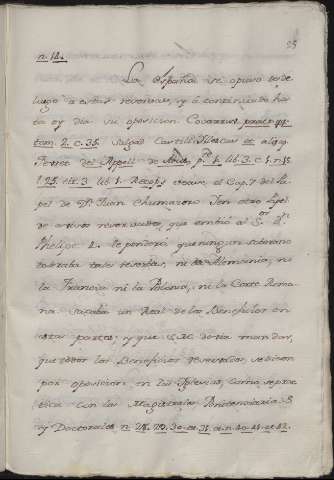 25
n. 12.
La España se opuso desde
luego a estas reservas, y a continuado has
ta oy dia su oposicion Covarrub. pract. qq.
tom. 2. c. 35. Salgad Castill
del Appell de p. 1. lib. 3. c. 1. n. 15
l. 25. tit. 3 lib. 1. Recop. el Cap. 7 del Pa
pel de Dn. Juan Chumacero. Y en otro Papel
de que embió al Sor. Dn.
Phelipe 4. le ponderó que ningun soberano
toleraba tales reservas, ni la Alemania, ni
la Francia ni la Polonia, ni la Corte Roma
na sacaba un Real de los Beneficios en
estas partes, y que S.M. devia mandar,
que todos los Beneficios reservados, se diesen
por oposicion en las Iglesias, como se prac
tica con las Magistrales Penitenciarias
y Doctorales, n. 28. 29. 30. et 31. et n. 40. 41. et 42.